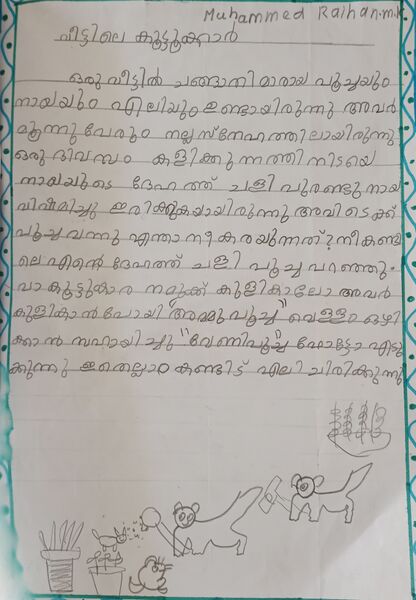 Muhammed Raihan.m.k
വീട്ടിലെ കൂട്ടുക്കാർ
ഒരു വീട്ടിൽ ചങ്ങാതിമാരായ പൂച്ചയും
നായയും എലിയും ഉണ്ടായിരുന്നു അവർ
മൂന്നുപേരും നല്ല സ്നേഹത്തിലായിരുന്നു
ഒരു ദിവസം കളിക്കുന്നത്തിനിടയെ
നായയുടെ ദേഹത്ത് ചളി പുരണ്ടു നായ
വിഷമിച്ചു ഇരിക്കുകയായിരുന്നു അവിടെക്ക്
പൂച്ച വന്നു എന്താ നീ കരയുന്നത്? നീ കണ്ടി
ലെ എൻ്റെ ദേഹത്ത് ചളി പൂച്ച പറഞ്ഞു.
വാ കൂട്ടുകാര നമുക്ക് കുളികാലോ അവർ
കുളികാൻ പോയി അമ്മുപൂച്ച" വെള്ളം ഒഴി
ക്കാൻ സഹായിച്ചു "വേണിപൂച്ച" ഫോട്ടോ എടു
ക്കുന്നു ഇതെല്ലാം കണ്ടിട്ട് എലി ചിരിക്കുന്നു